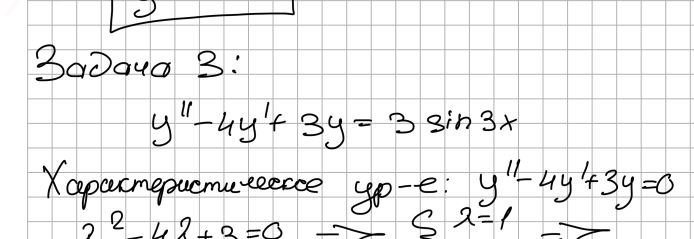 Задача 3:
y'' - 4y' + 3y = 3 sin 3x
Характеристическое ур-е: y'' - 4y' + 3y = 0
λ² - 4λ + 3 = 0 => { λ = 1 =>